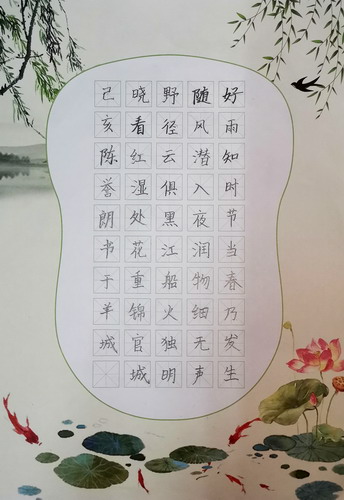 好雨知时节当春乃发生
随风潜入夜润物细无声
野径云俱黑江船火独明
晓看红湿处花重锦官城
己亥陈誉朗书于羊城